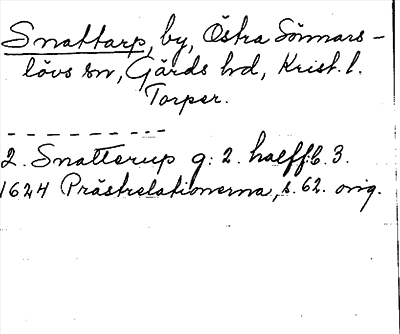 Snattarp, by, Östra Sönnars-
lövs sn, Gärds hd, Krist. l.
Torper.
2. Snatterup g: 2. halff b. 3.
1624 Prästrelationerna, s. 62. orig.